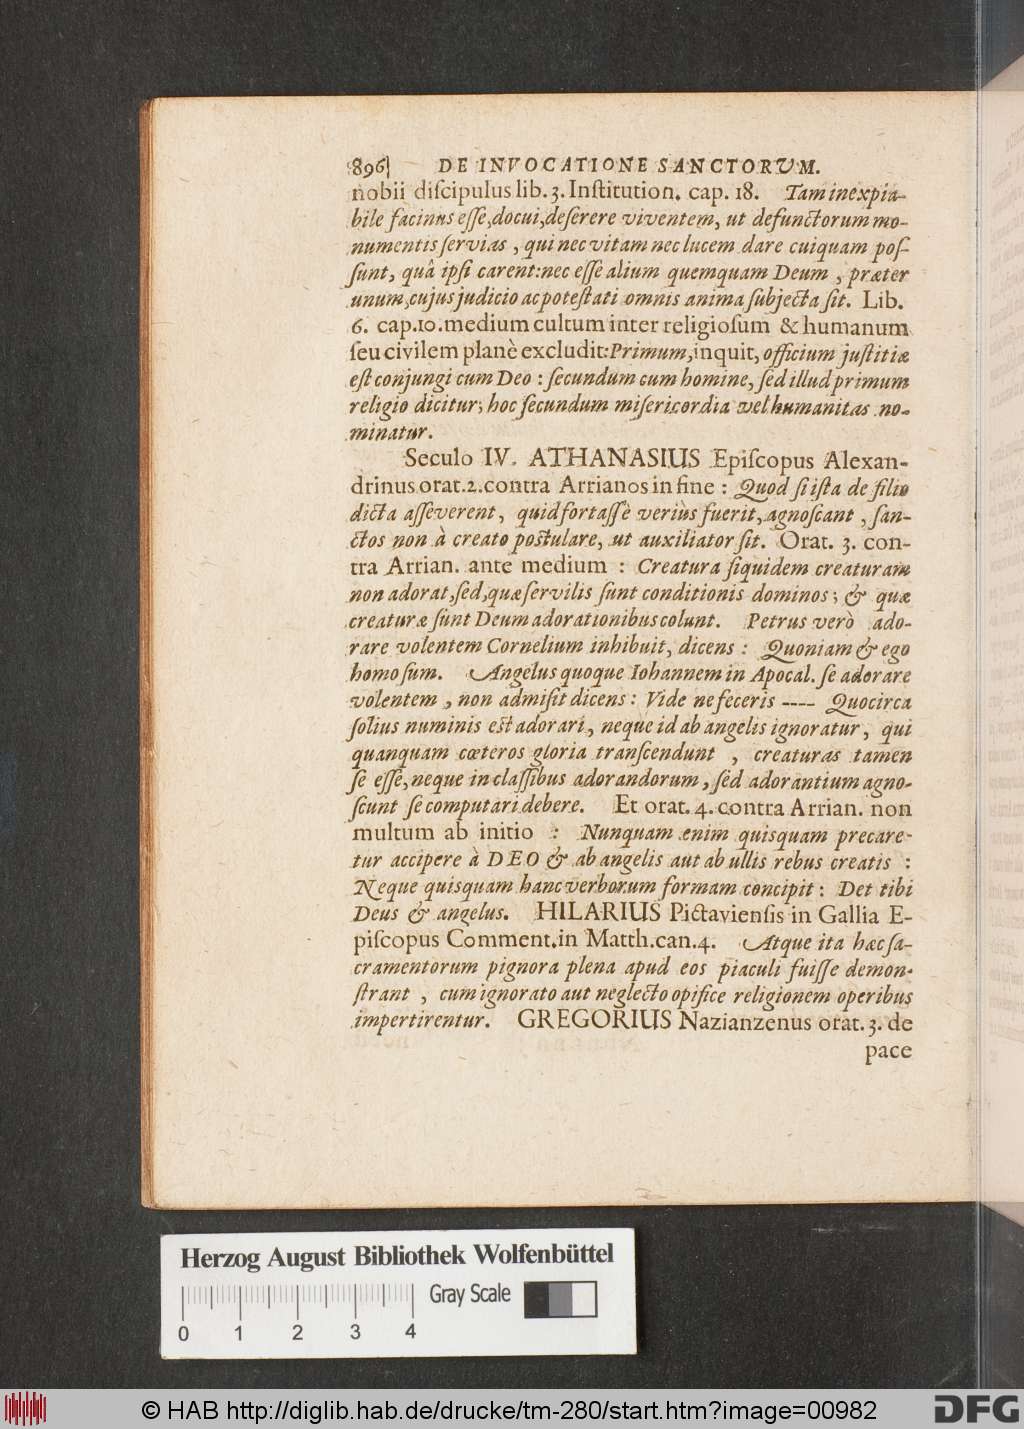 896 DE INVOCATIONE SANCTORUM.
nobii diſcipulus lib. 3. Inſtitution. cap. 18. Tam inexpia-
bile facinus eſſe, docui, deſerere viventem, ut defunctorum mo-
numentis ſervias, qui nec vitam nec lucem dare cuiquam poſ-
ſunt, quâ ipſi carent: nec eſſe alium quemquam Deum, præter
unum, cujus judicio ac poteſtati omnis anima ſubjecta ſit. Lib.
6. cap. 10. medium cultum inter religioſum & humanum
ſeu civilem planè excludit: Primum, inquit, officium juſtitiæ
eſt conjungi cum Deo: ſecundum cum homine, ſed illud primum
religio dicitur; hoc ſecundum miſericordia vel humanitas no-
minatur.
Seculo IV. ATHANASIUS Epiſcopus Alexan-
drinus orat. 2. contra Arrianos in fine: Quod ſi iſta de filio
dicta aſſeverent, quid fortaſſè veriùs fuerit, agnoſcant, ſan-
ctos non à creato poſtulare, ut auxiliator ſit. Orat. 3. con-
tra Arrian. ante medium: Creatura ſiquidem creaturam
non adorat, ſed, quæ ſervilis ſunt conditionis dominos; & quæ
creaturæ ſunt Deum adorationibus colunt. Petrus verò ado-
rare volentem Cornelium inhibuit, dicens: Quoniam & ego
homo ſum. Angelus quoque Iohannem in Apocal. ſe adorare
volentem, non admiſit dicens: Vide ne feceris ---- Quocirca
ſolius numinis eſt adorari, neque id ab angelis ignoratur, qui
quanquam cœteros gloria tranſcendunt, creaturas tamen
ſe eſſe, neque in claſſibus adorandorum, ſed adorantium agno-
ſcunt ſe computari debere. Et orat. 4. contra Arrian. non
multum ab initio: Nunquam enim quisquam precare-
tur accipere à DEO & ab angelis aut ab ullis rebus creatis:
Neque quisquam hanc verborum formam concipit: Det tibi
Deus & angelus. HILARIUS Pictavienſis in Gallia E-
piſcopus Comment. in Matth. can. 4. Atque ita hæc ſa-
cramentorum pignora plena apud eos piaculi fuiſſe demon-
ſtrant, cum ignorato aut neglecto opifice religionem operibus
impertirentur. GREGORIUS Nazianzenus orat. 3. de
pace
Herzog August Bibliothek Wolfenbüttel
Gray Scale
0 1 2 3 4
© HAB http://diglib.hab.de/drucke/tm-280/start.htm?image=00982
DFG